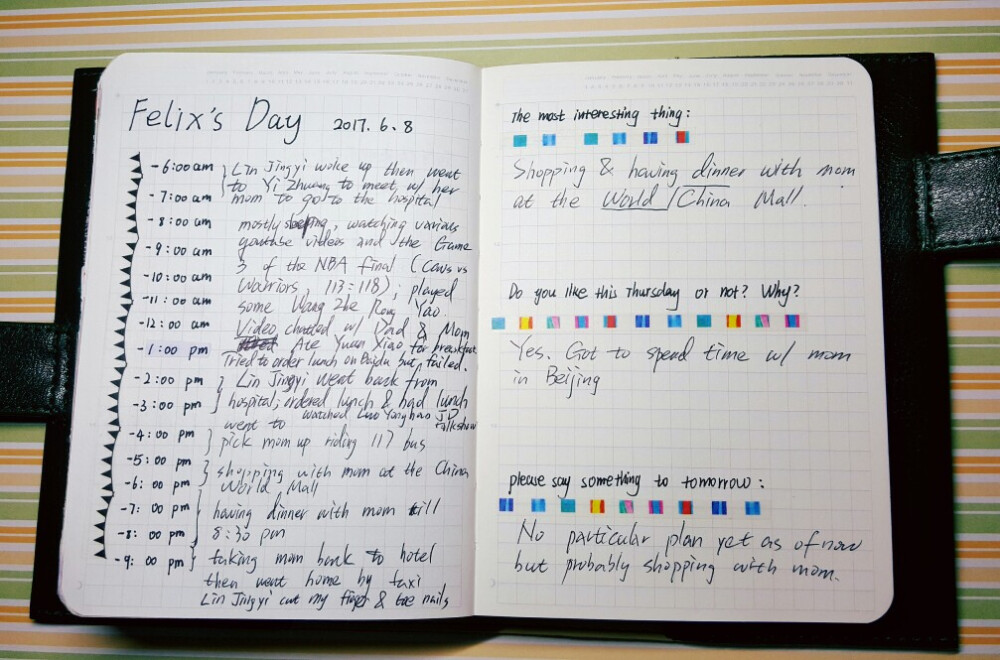 Felix's Day 2017.6.8
-6:00 am Lin Jingyi woke up then went
to Yi Zhuang to meet w/ her
-7:00 am mom to go to the hospital
-8:00 am mostly sleeping, watching various
youtube videos and the Game
-9:00 am
3 of the NBA final (Cavs vs
-10:00 am Warriors, 113:118); played
-11:00 am some Wang Zhe Rong Yao.
-12:00 am Video chatted w/ Dad & Mom
-1:00 pm Ate Yuan Xiao for breakfast
Tried to order lunch on Baidu but failed.
-2:00 pm Lin Jingyi went back from
-3:00 pm hospital; ordered lunch & had lunch
watched Luo Yonghao JD talkshow
went to
-4:00 pm pick mom up riding 117 bus
-5:00 pm shopping with mom at the China
-6:00 pm World Mall
-7:00 pm having dinner with mom till
-8:00 pm 8:30 pm
-9:00 pm taking mom back to hotel
then went home by taxi
Lin Jingyi cut my finger & toe nails
The most interesting thing:
Shopping & having dinner with mom
at the World China Mall.
Do you like this Thursday or not? Why?
Yes. Got to spend time w/ mom
in Beijing
please say something to tomorrow:
No particular plan yet as of now
but probably shopping with mom.